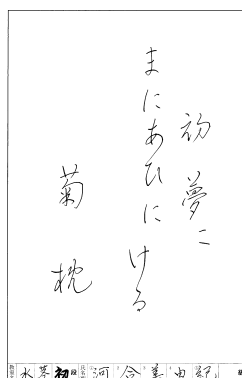 初夢に
まにあひにける
菊枕
初段
河合美由紀